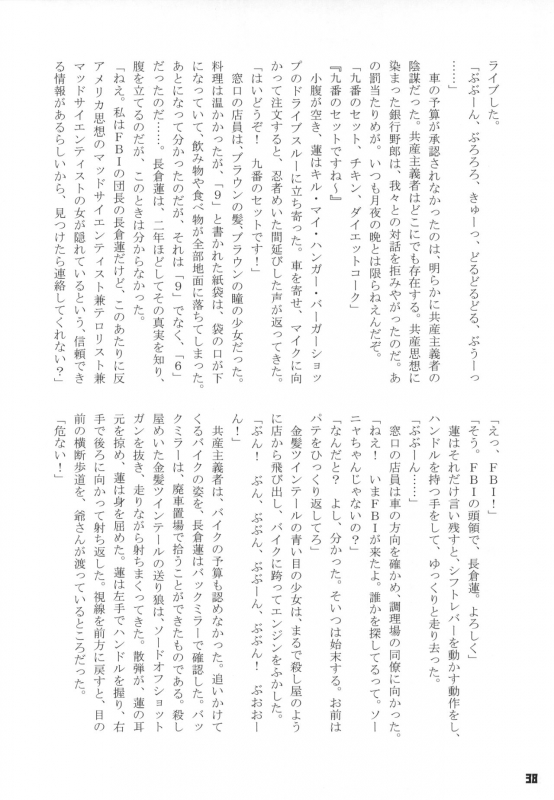 ライブした。
「ぶぶーん、ぶろろろ、きゅーっ、どるどるどる、ぶぅーっ
……」
　車の予算が承認されなかったのは、明らかに共産主義者の
陰謀だった。共産主義者はどこにでも存在する。共産思想に
染まった銀行野郎は、我々との対話を拒みやがったのだ。あ
の罰当たりめが、いつも月夜の晩とは限らねえんだぞ。
「九番のセット、チキン、ダイエットコーク」
『九番のセットですね〜』
　小腹が空き、蓮はキル・マイ・ハンガー・バーガーショッ
プのドライブスルーに立ち寄った。車を寄せ、マイクに向
かって注文すると、忍者めいた間延びした声が返ってきた。
「はいどうぞ！　九番のセットです！」
　窓口の店員は、ブラウンの髪、ブラウンの瞳の少女だった。
料理は温かかったが、「９」と書かれた紙袋は、袋の口が下
になっていて、飲み物や食べ物が全部地面に落ちてしまった。
あとになって分かったのだが、それは「９」でなく、「６」
だったのだ……。長倉蓮は、二年ほどしてその真実を知り、
腹を立てるのだが、このときは分からなかった。
「ねえ。私はＦＢＩの団長の長倉蓮だけど、このあたりに反
アメリカ思想のマッドサイエンティスト兼テロリスト兼
マッドサイエンティストの女が隠れているという、信頼でき
る情報があるらしいから、見つけたら連絡してくれない？」
「えっ、ＦＢＩ！」
「そう。ＦＢＩの頭領で、長倉蓮。よろしく」
　蓮はそれだけ言い残すと、シフトレバーを動かす動作をし、
ハンドルを持つ手をして、ゆっくりと走り去った。
「ぶぶーん……」
　窓口の店員は車の方向を確かめ、調理場の同僚に向かった。
「ねえ！　いまＦＢＩが来たよ。誰かを探してるって。ソー
ニャちゃんじゃないの？」
「なんだと？　よし、分かった。そいつは始末する。お前は
パテをひっくり返してろ」
　金髪ツインテールの青い目の少女は、まるで殺し屋のよう
に店から飛び出し、バイクに跨ってエンジンをふかした。
「ぶん！　ぶん、ぶぶん、ぶぶーん、ぶぶん！　ぶおおー
ん！」
　共産主義者は、バイクの予算も認めなかった。追いかけて
くるバイクの姿を、長倉蓮はバックミラーで確認した。バッ
クミラーは、廃車置場で拾うことができたものである。殺し
屋めいた金髪ツインテールの送り狼は、ソードオフショット
ガンを抜き、走りながら射ちまくってきた。散弾が、蓮の耳
元を掠め、蓮は身を屈めた。蓮は左手でハンドルを握り、右
手で後ろに向かって射ち返した。視線を前方に戻すと、目の
前の横断歩道を、爺さんが渡っているところだった。
「危ない！」
38